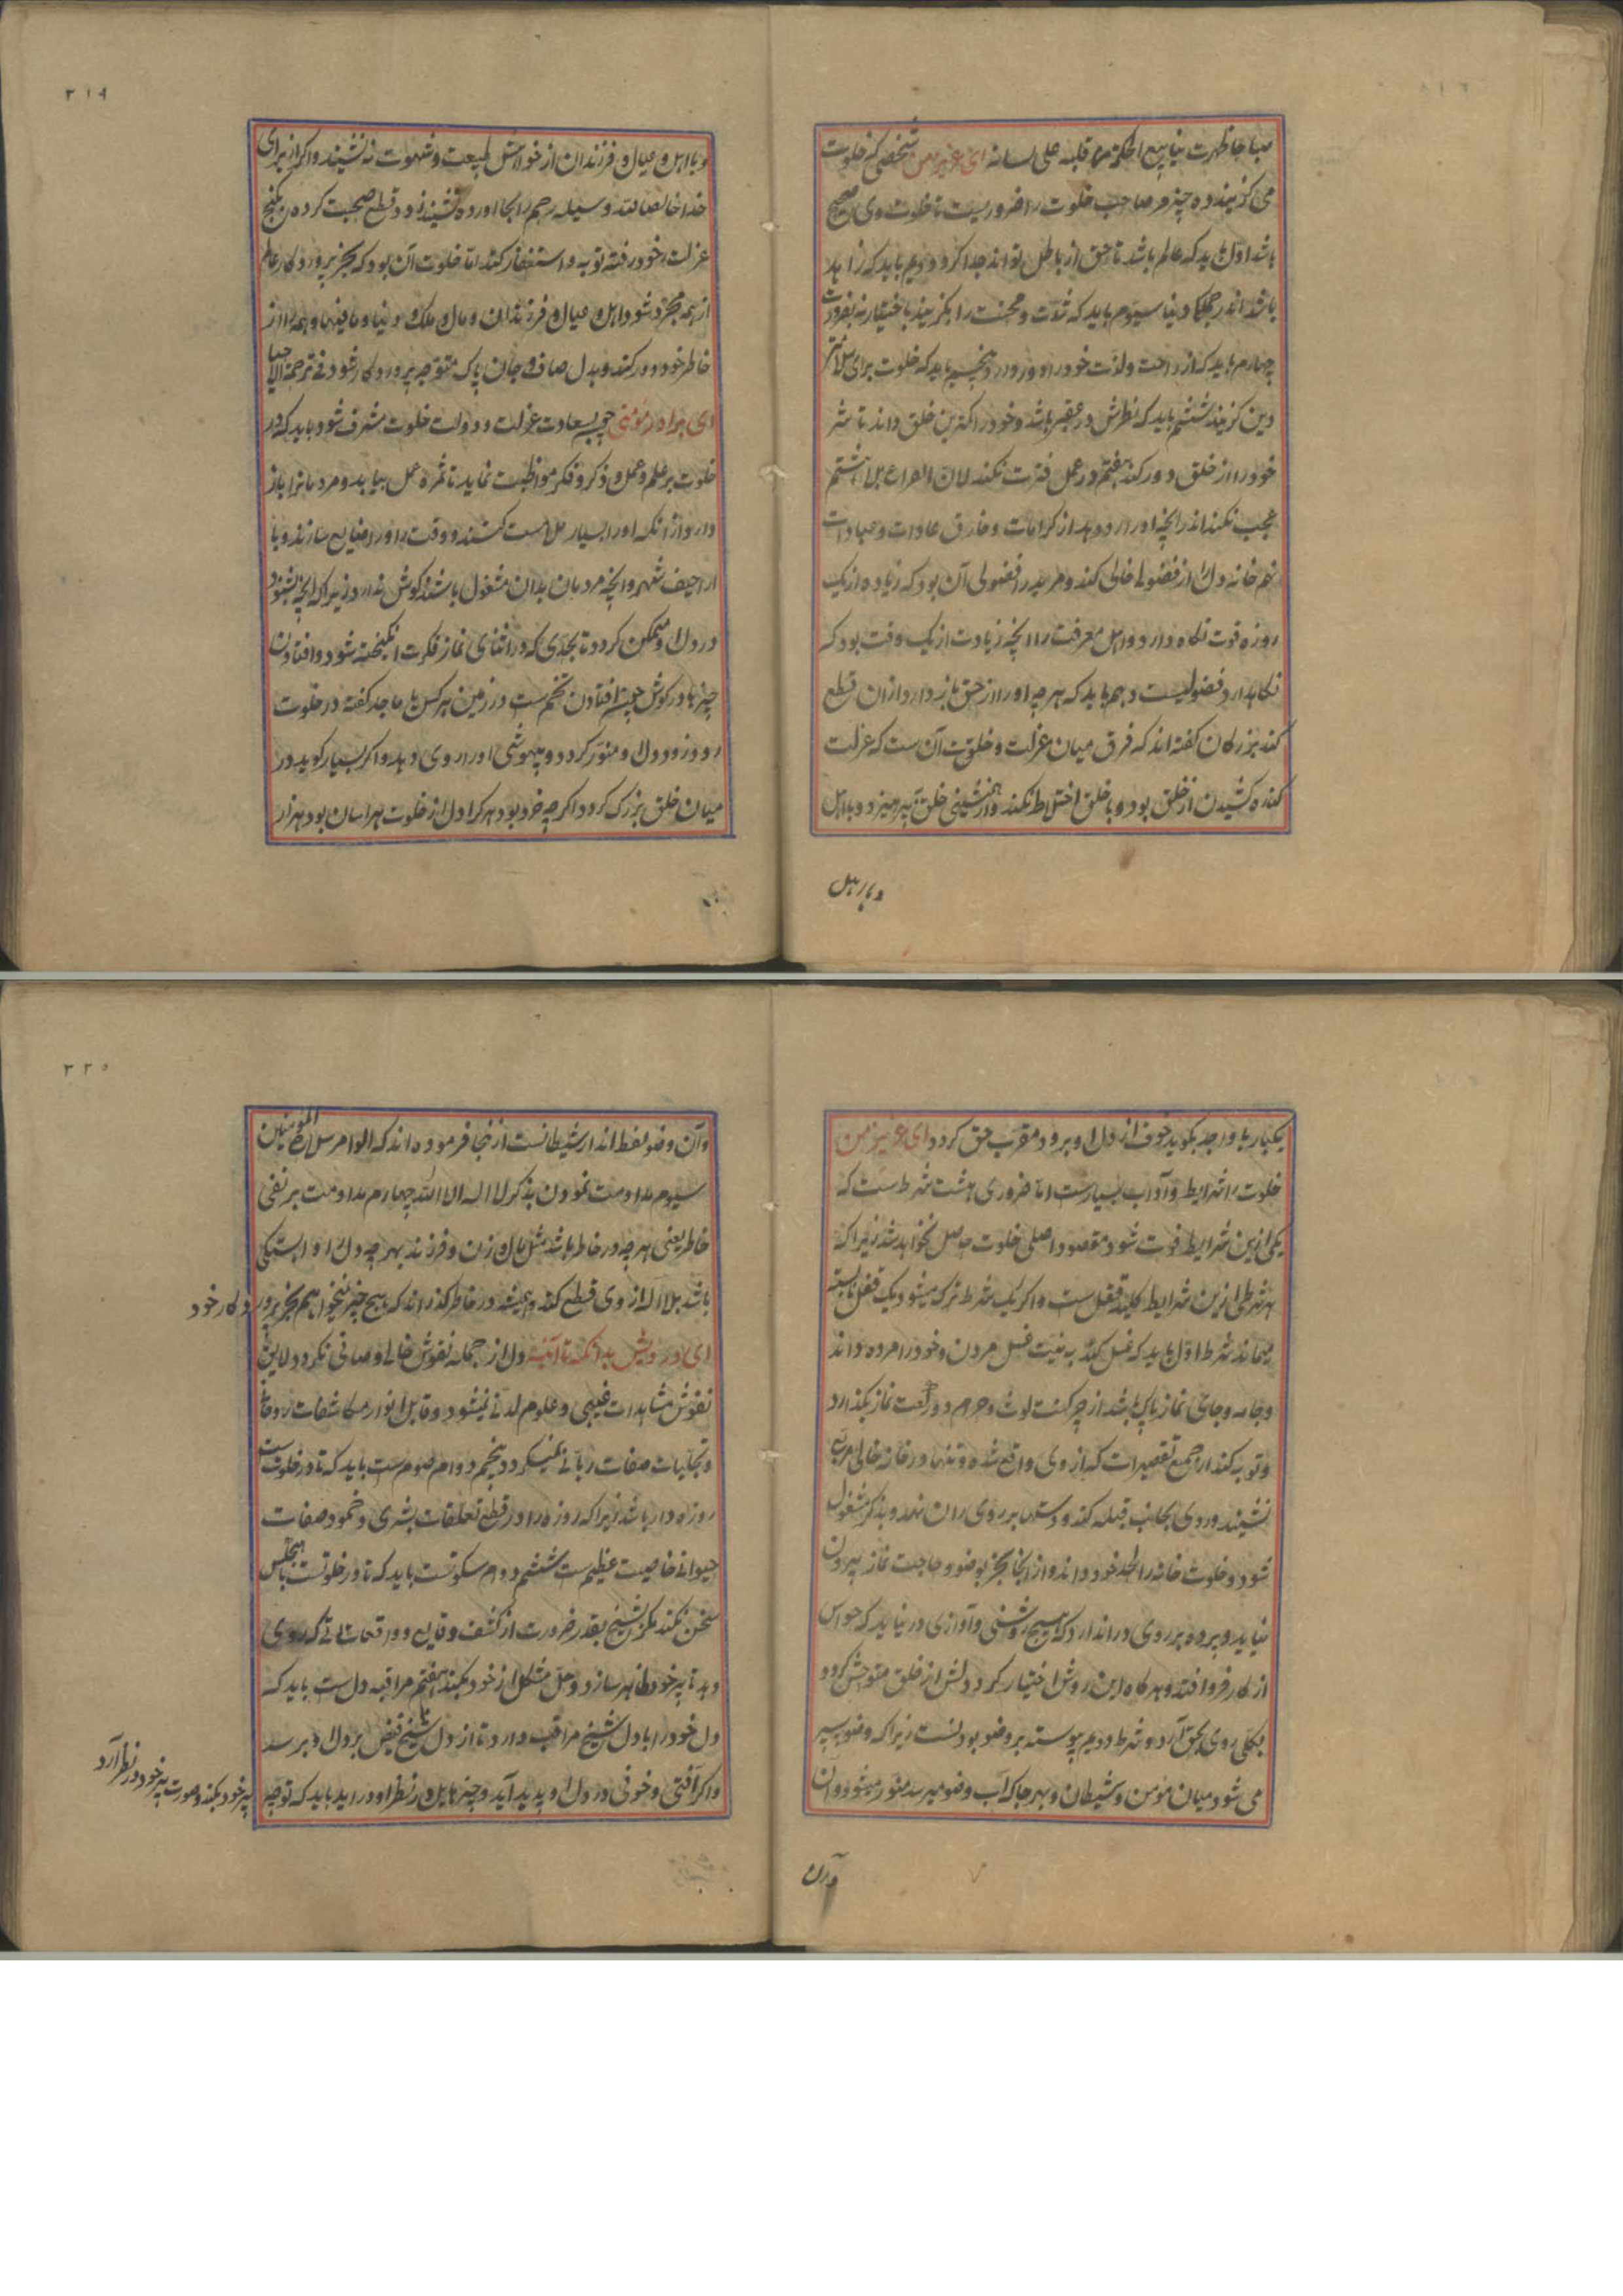 صباحا ظهرت ینابیع الحکمة من قلبه علی لسانه ای عزیز من شخصی که خلوت
می گزیند ده چیز مر صاحب خلوت را ضروریست تا خلوت وی صحیح
باشد اول باید که عالم باشد تا حق از باطل تواند جدا کرد دویم باید که زاهد
باشد اندر جملکا دنیا سیوم باید که شدت و محنت را بگزیند باختیار نه بضرورت
چهارم باید که از راحت و لذت خود را دور دارد پنجم باید که خلوت برای سلامتی
دین گزیند ششم باید که نظرش در عقبی باشد و خود را کمترین خلق داند تا شر
خود را از خلق دور کند هفتم در عمل فترت نکند لان الفراغ بلا هشتم
عجب نکند اندر آنچه او را رو دهد از کرامات و خارق عادات و عبادات
نهم خانه دل را از فضولی خالی کند و مرید را فضولی آن بود که زیاده از یک
روزه قوت نگاه دارد و اهل معرفت را آنچه زیادت از یک وقت بود که
نگاهدارد فضولیست دهم باید که هر چه او را از حق باز دارد از آن قطع
کند بزرگان گفته اند که فرق میان عزلت و خلوت آن ست که عزلت
کناره کشیدن از خلق بود و با خلق اختلاط نکند و از همنشینی خلق بپرهیزد و با اهل
و با اهل
۳۱۹
و با اهل و عیال و فرزندان از خواهش طبیعت و شهوت نه نشیند و اگر از برای
خدا خالصا لله وسیله رحم را بجا آورده نشیند زود قطع صحبت کرده بکنج
عزلت خود رفته توبه و استغفار کند اما خلوت آن بود که بجز پروردگار عالم
از همه مجرد شود اهل و عیال و فرزندان و مال و ملک و دنیا و مافیها و همه را از
خاطر خود دور کند و بدل صاف و جان پاک متوجه پروردگار شود فی ترجمة الاحیا
ای برادر مؤمنی چون بسعادت عزلت و دولت خلوت مشرف شود باید که در
خلوت بر علم و عمل و ذکر و فکر مواظبت نماید تا ثمره عمل بیابد و مردمانرا باز
دارد از آنکه او را بسیار ملامت کنند و وقت او را ضایع سازند و با
اراجیف شهر و آنچه مردمان بدان مشغول باشند گوش ندارد زیرا که آنچه بشنود
در دل او متمکن گردد تا بحدی که در اثنای نماز فکرت انگیخته شود و افتادن
چیزها در گوش چون افتادن تخم ست در زمین هر کس یا ماجد گفته در خلوت
رود زود دل او منور گردد و بیهوشی او را روی دهد و اگر بسیار گوید در
میان خلق بزرگ گردد اگر چه خرد بود هر کرا دل از خلوت هراسان بود هزار
یکبار یا واجد بگوید خوف از دل او برود مقرب حق گردد ای عزیز من
خلوت را شرایط و آداب بسیارست اما ضروری هشت شرط ست که
یکی ازین شرایط فوت شود مقصود اصلی خلوت حاصل نخواهد شد زیرا که
هر شرطی ازین شرایط کلید قفل ست و اگر یک شرط ترک میشود یک قفل نابسته
میماند شرط اول باید که غسل کند به نیت غسل مردن و خود را مرده داند
و جامه و جای نماز پاک باشد از چرکنت لوث و حرام دو رکعت نماز بگذارد
و توبه کند از جمیع تقصیرات که از وی واقع شده و تنها در خانه خالی مربع
نشیند و روی بجانب قبله کند و دستها بر روی ران نهد و بذکر مشغول
شود و خلوت خانه را لحد خود داند و از آنجا بجز بوضو و حاجت نماز بیرون
نیاید و پرده بر روی در اندازد که هیچ روشنی و آوازی در نیاید که حواس
از کار فرو افتد و هر گاه این روش اختیار کرد دلش از خلق متوحش گردد
بکلی روی بحق آرد و شرط دویم پیوسته بر وضو بودنست زیرا که وضو سپر
می شود میان مؤمن و شیطان و بهر جا که آب وضو میرسد منور میشود و آن
و آن
۳۲۰
و آن وضو لفظ اندار شیطانست ازینجا فرموده اند که الوضوء سلاح المؤمنین
سیوم مداومت نمودن بذکر لا اله الا الله چهارم مداومت بر نفی
خاطر یعنی هر چه در خاطر باشد مثل مال و زن و فرزند بهر چه دل او را بستگی
باشد بلا اله از وی قطع کند و همیشه در خاطر گذراند که هیچ چیز نمیخواهم بجز پرور
دگار خود
ای درویش بدانکه تا آئینه دل از جمله نقوش خالی و صافی نگردد لایق
نقوش مشاهدات غیبی و علوم لدنی نمیشود و قابل انوار مکاشفات روحانی
و تجلیات صفات ربانی نمیگردد پنجم دوام صوم ست باید که تا در خلوت ست
روزه دار باشد زیرا که روزه را در قطع تعلقات بشری و خمود صفات
حیوانی خاصیت عظیم ست ششم دوام سکوتست باید که تا در خلوتست با هیچکس
سخن نکند مگر بشیخ بقدر ضرورت از کشف وقایع و واقعات تا که روی
دهد تا به پیر خود ظاهر سازد و حل مشکل از خود بکند هفتم مراقبه دل ست باید که
دل خود را با دل شیخ مراقب دارد تا از دل شیخ فیض بر دل او برسد
و اگر آفتی و خوفی در دل او پدید آید و چیز هایل در نظر او در آید باید که توجه
به پیر خود بکند و صورت پیر خود در نظر آرد